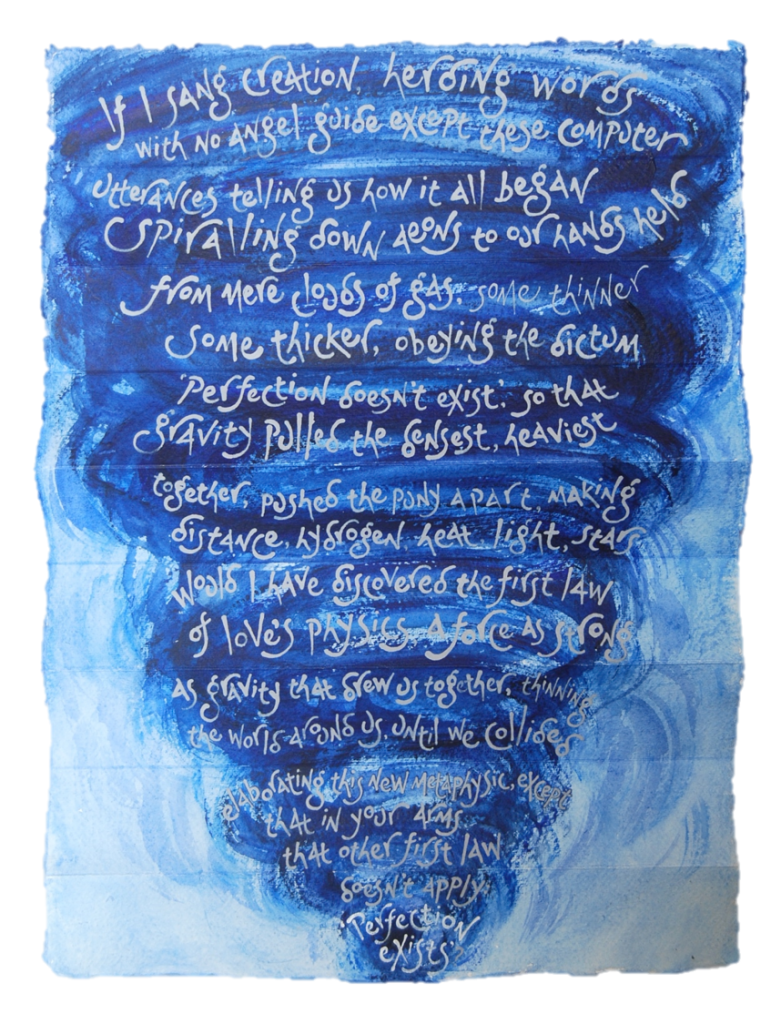 If I sang creation, herding words
with no angel guide except these computer
utterances telling us how it all began
spiralling down aeons to our hands held
from mere clouds of gas, some thinner
some thicker, obeying the dictum
'Perfection doesn't exist', so that
gravity pulled the densest, heaviest
together, pushed the puny apart, making
distance, hydrogen, heat, light, stars
would I have discovered the first law
of love's physics, a force as strong
as gravity that drew us together, thinning
the world around us, until we collided
elaborating this new metaphysic, except
that in your arms
that other first law
doesn't apply:
'Perfection
exists'?